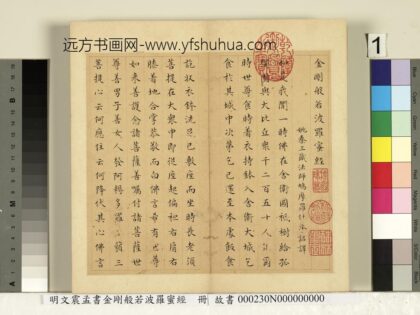 远方书画网-www.yfshuhua.com
1
金剛般若波羅蜜經
姚秦三藏法師鳩摩羅什奉詔譯
如是我聞一時佛在舍衛國祇樹給孤
獨園與大比丘衆千二百五十人俱爾
時世尊食時著衣持鉢入舍衛大城乞
食於其城中次第乞已還至本處飯食
訖收衣鉢洗足已敷座而坐時長老須
菩提在大衆中即從座起偏袒右肩右
膝着地合掌恭敬而白佛言希有世尊
如來善護念諸菩薩善付囑諸菩薩世
尊善男子善女人發阿耨多羅三藐三
菩提心云何應住云何降伏其心佛言
明文震孟書金剛般若波羅蜜經　冊 故書 000230N000000000